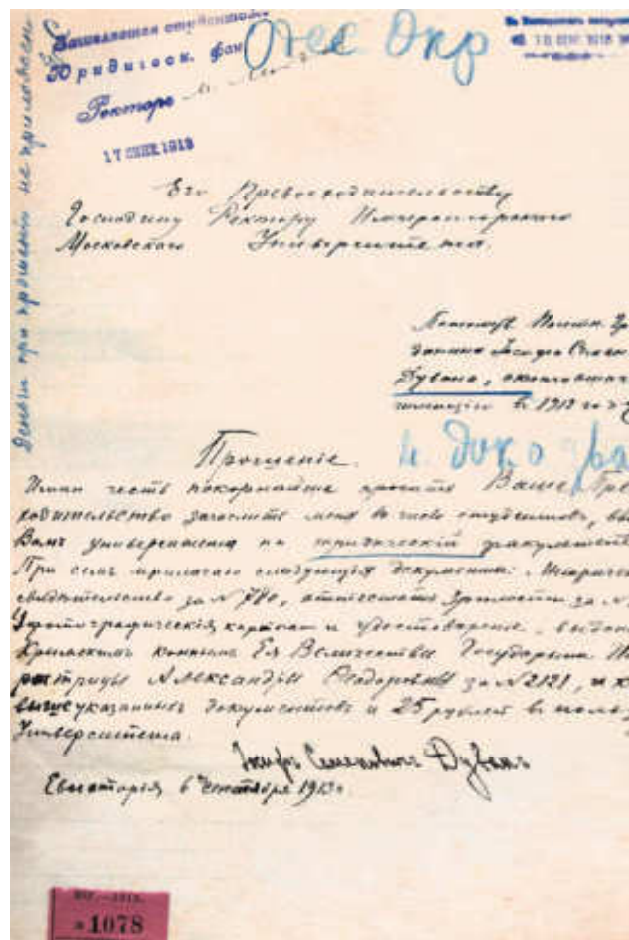 Зачисляется студентомъ
Юридическ. фак
Ректоръ М.
17 СЕНТ. 1913
Деньги при прошеніи не приложены
Его Превосходительству
Господину Ректору Императорскаго
Московскаго Университета.
Дувана, окончившаго
гимназію въ 1913 году
Прошеніе.
Имѣю честь покорнѣйше просить Ваше Пре
восходительство зачислить меня въ число студентовъ, вв
Вамъ университета на юридическій факультетъ
При семъ прилагаю слѣдующія документы: Метричес
свидѣтельство за № 780, аттестатъ зрѣлости за №
фотографическія карточки и удостовѣреніе, выдан
Крымскимъ коннымъ Ея Величества Государыни
Александры Ѳеодоровны за № 2121, и к
вышеуказанныхъ документовъ и 25 рублей въ пользу
Университета.
Семеновичъ Дуванъ
Евпаторія 6 сентября 1913 г.
1078